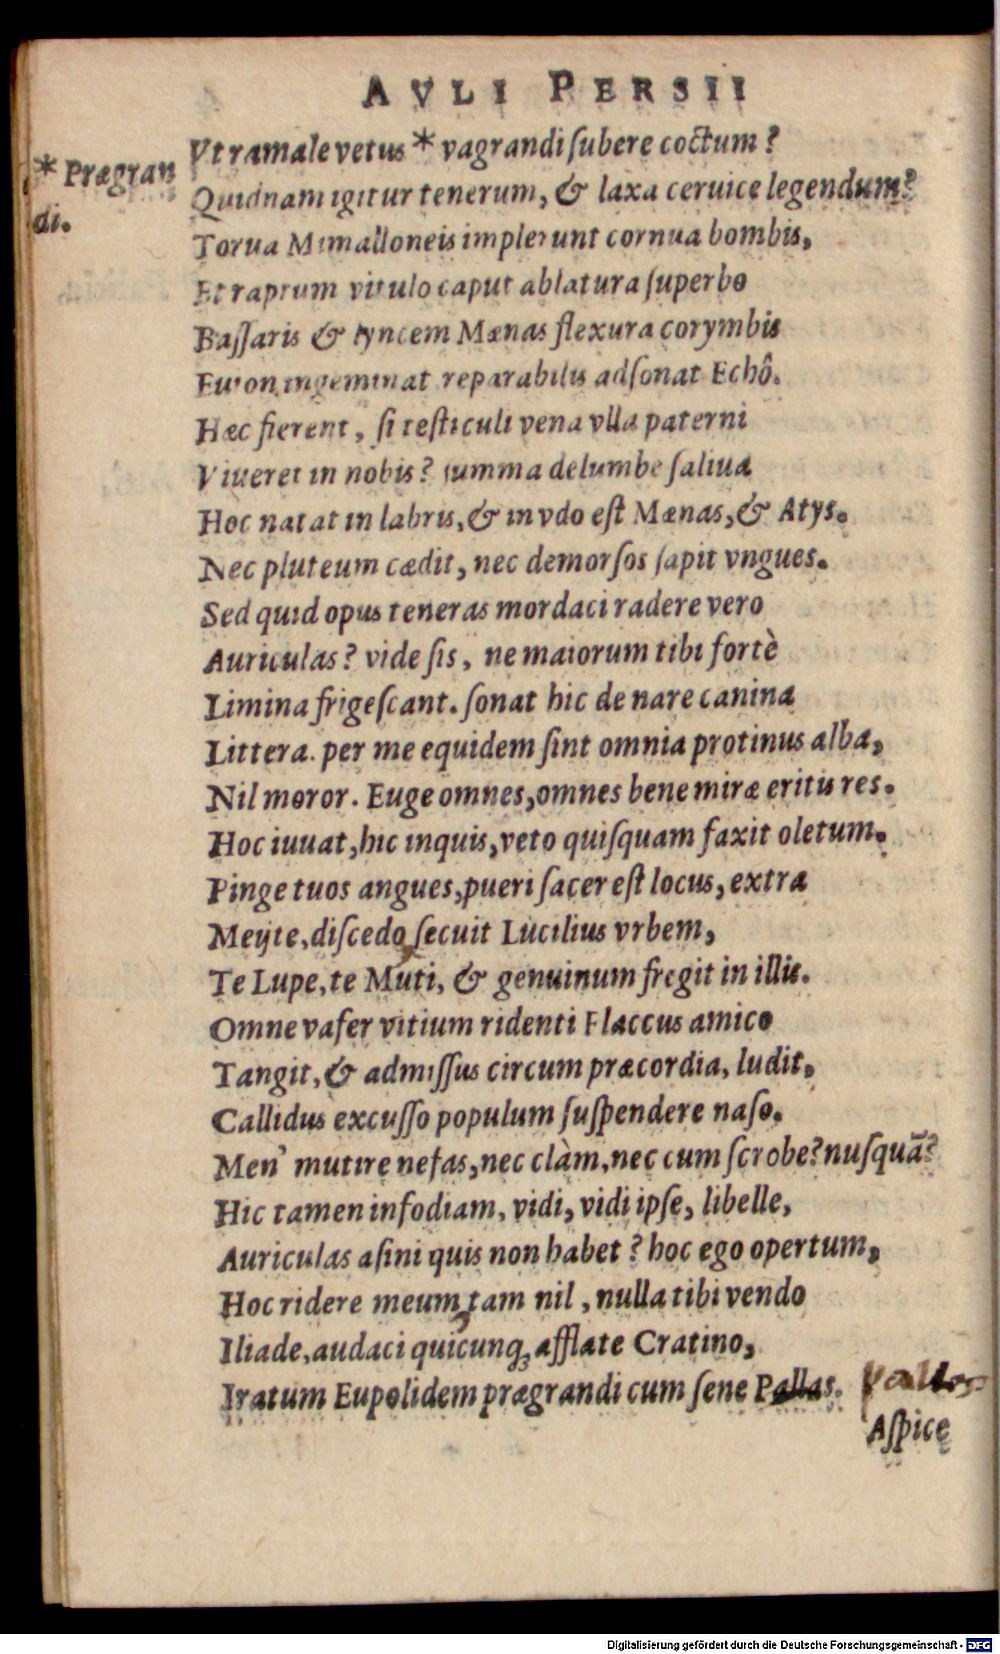 AVLI PERSII
* Prægran
di.
Vt ramale vetus * vagrandi ſubere coctum?
Quidnam igitur tenerum, & laxa ceruice legendum?
Torua Mimalloneis implerunt cornua bombis,
Et raptum vitulo caput ablatura ſuperbo
Baſſaris & lyncem Mænas flexura corymbis
Euion ingeminat reparabilis adſonat Echô.
Hæc fierent, ſi teſticuli vena vlla paterni
Viueret in nobis? ſumma delumbe ſaliua
Hoc natat in labris, & in vdo eſt Mænas, & Atys.
Nec pluteum cædit, nec demorſos ſapit vngues.
Sed quid opus teneras mordaci radere vero
Auriculas? vide ſis, ne maiorum tibi fortè
Limina frigeſcant. ſonat hic de nare canina
Littera. per me equidem ſint omnia protinus alba,
Nil moror. Euge omnes, omnes bene miræ eritis res.
Hoc iuuat, hic inquis, veto quiſquam faxit oletum.
Pinge tuos angues, pueri ſacer eſt locus, extra
Meijte, diſcedo, ſecuit Lucilius vrbem,
Te Lupe, te Muti, & genuinum fregit in illis.
Omne vafer vitium ridenti Flaccus amico
Tangit, & admiſſus circum præcordia, ludit,
Callidus excuſſo populum ſuſpendere naſo.
Men' mutire nefas, nec clàm, nec cum ſcrobe? nuſquã?
Hic tamen infodiam, vidi, vidi ipſe, libelle,
Auriculas aſini quis non habet? hoc ego opertum,
Hoc ridere meum, tam nil, nulla tibi vendo
Iliade, audaci quicunq; afflate Cratino,
Iratum Eupolidem prægrandi cum ſene Pallas.
Palles
Aſpice
Digitalisierung gefördert durch die Deutsche Forschungsgemeinschaft - DFG